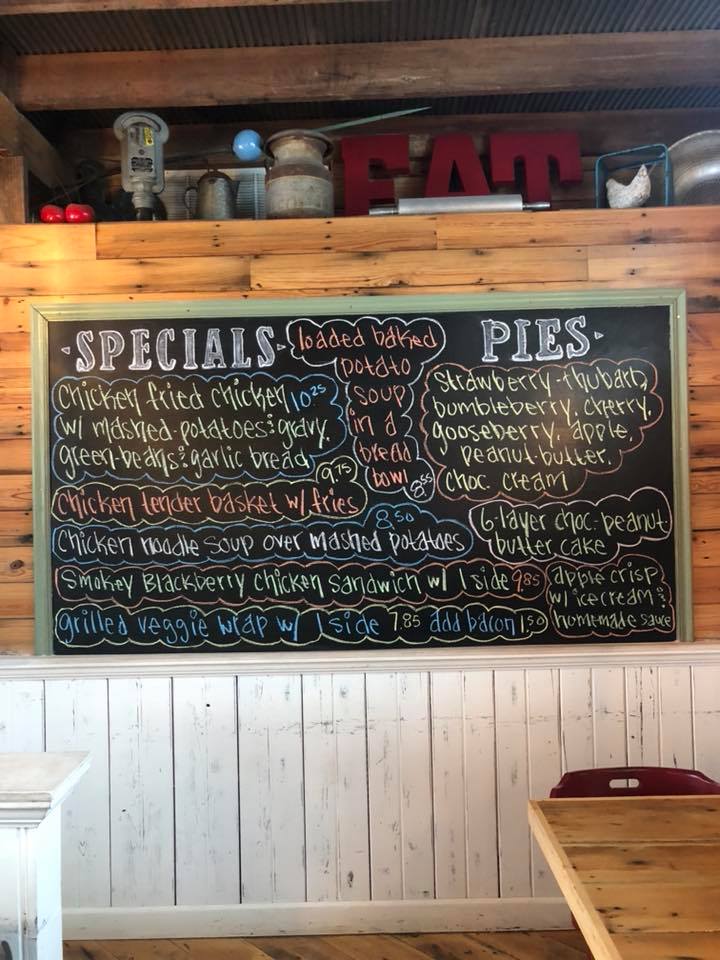 EAT
SPECIALS
chicken fried chicken 10.25
w/ mashed-potatoes & gravy,
green-beans & garlic bread
loaded baked
potato
soup
in a
bread
bowl 8.55
chicken tender basket w/ fries 9.75
chicken noodle soup over mashed potatoes 8.50
smokey Blackberry chicken sandwich w/ 1 side 9.85
grilled veggie wrap w/ 1 side 7.85 add bacon 1.50
PIES
strawberry-rhubarb,
bumbleberry, cherry,
gooseberry, apple,
peanut-butter,
choc. cream
6-layer choc-peanut-
butter cake
apple crisp
w/ ice cream &
homemade sauce